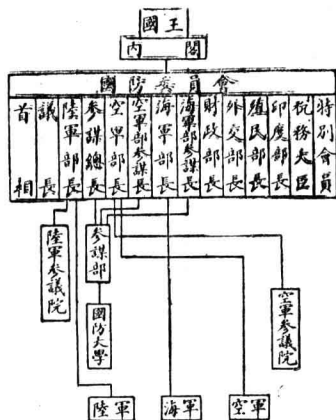 國王
內閣
國防委員會
首相
議長
陸軍部長
參謀總長
空軍部長
空軍部參謀長
海軍部長
海軍部參謀長
財政部長
外交部長
殖民部長
印度部長
稅務大臣
特別會員
陸軍參議院
參謀部
國防大學
空軍參議院
陸軍
海軍
空軍